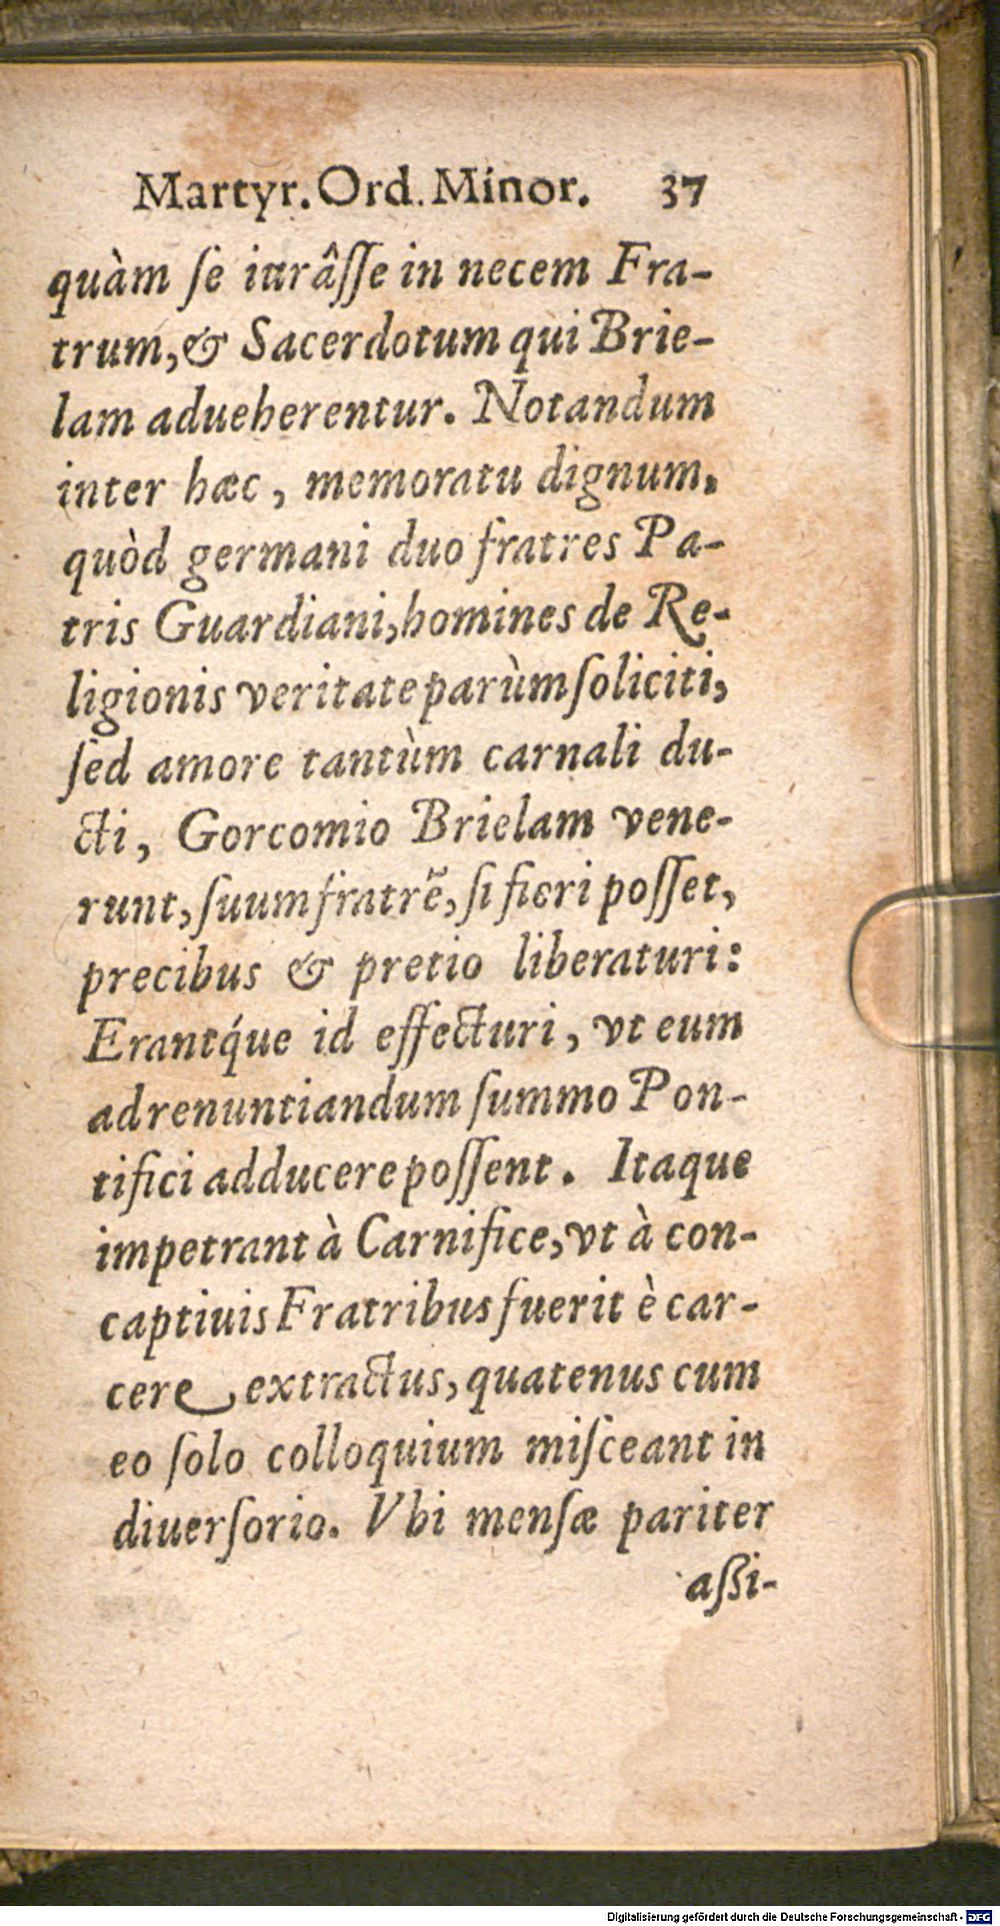 Martyr. Ord. Minor. 37
quàm ſe iurâſſe in necem Fra-
trum, & Sacerdotum qui Brie-
lam adueherentur. Notandum
inter hæc, memoratu dignum.
quòd germani duo fratres Pa-
tris Guardiani, homines de Re-
ligionis veritate parùm ſoliciti,
ſed amore tantùm carnali du-
cti, Gorcomio Brielam vene-
runt, ſuum fratrẽ, ſi fieri poſſet,
precibus & pretio liberaturi:
Erantq́ue id effecturi, vt eum
ad renuntiandum ſummo Pon-
tifici adducere poſſent. Itaque
impetrant à Carnifice, vt à con-
captiuis Fratribus fuerit è car-
cere extractus, quatenus cum
eo ſolo colloquium miſceant in
diuerſorio. Vbi menſæ pariter
aßi-
Digitalisierung gefördert durch die Deutsche Forschungsgemeinschaft - DFG